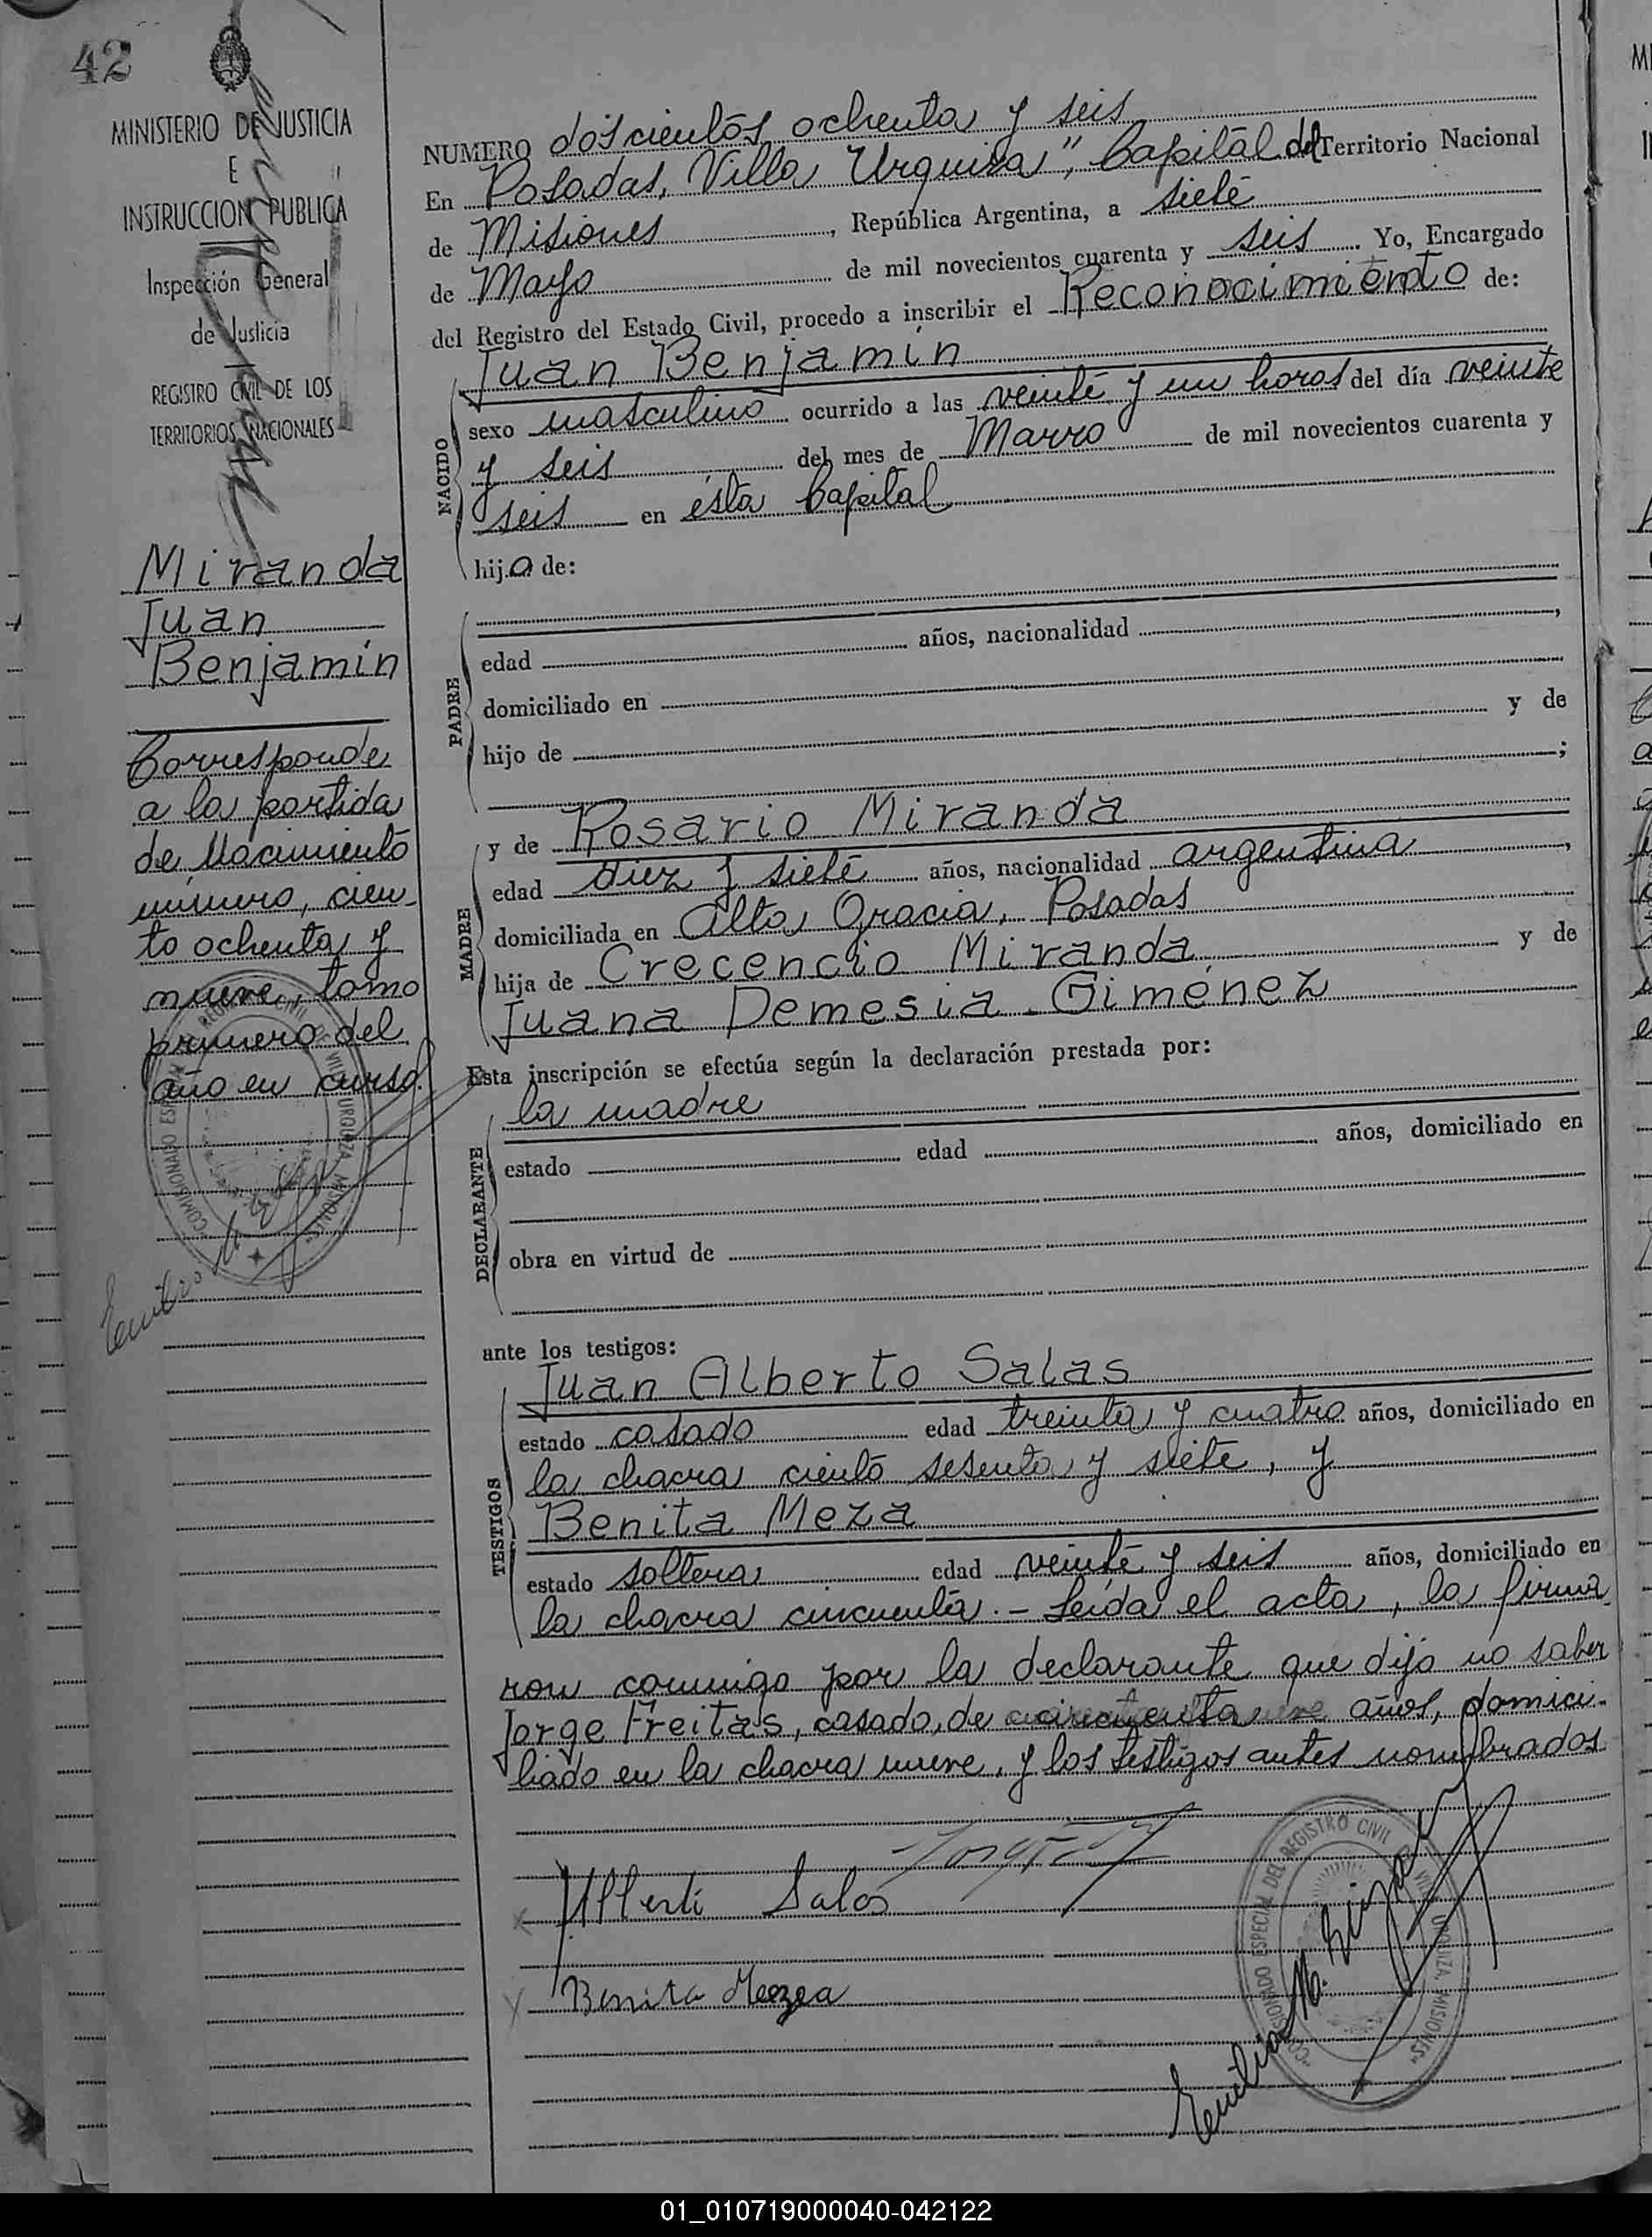 42
MINISTERIO DE JUSTICIA
E
INSTRUCCION PUBLICA
Inspección General
de Justicia
REGISTRO CIVIL DE LOS
TERRITORIOS NACIONALES
Miranda
Juan
Benjamín
Corresponde
a la partida
de Nacimiento
número, cien-
to ochenta y
nueve, tomo
primero del
año en curso.
NUMERO doscientos ochenta y seis
En Posadas, Villa "Urquiza", Capital del Territorio Nacional
de Misiones, República Argentina, a siete
de Mayo de mil novecientos cuarenta y seis. Yo, Encargado
del Registro del Estado Civil, procedo a inscribir el Reconocimiento de:
NACIDO
Juan Benjamín
sexo masculino ocurrido a las veinte y un horas del día veinte
y seis del mes de Marzo de mil novecientos cuarenta y
seis en ésta Capital
hijo de:
PADRE
edad años, nacionalidad ,
domiciliado en
hijo de y de
;
MADRE
y de Rosario Miranda
edad diez y siete años, nacionalidad argentina,
domiciliada en Alta Gracia, Posadas
hija de Crecencio Miranda y de
Juana Demesia Giménez
Esta inscripción se efectúa según la declaración prestada por:
DECLARANTE
la madre
estado edad años, domiciliado en
obra en virtud de
ante los testigos:
TESTIGOS
Juan Alberto Salas
estado casado edad treinta y cuatro años, domiciliado en
la chacra ciento sesenta y siete, y
Benita Meza
estado soltera edad veinte y seis años, domiciliado en
la chacra cincuenta.- Leída el acta, la firma
ron conmigo por la declarante que dijo no saber
Jorge Freitas, casado, de años, domici-
liado en la chacra nueve, y los testigos antes nombrados
Alberti Salas
Benita Meza
COMISIONADO ESPECIAL DEL REGISTRO CIVIL VILLA URQUIZA, MISIONES
01_010719000040-042122